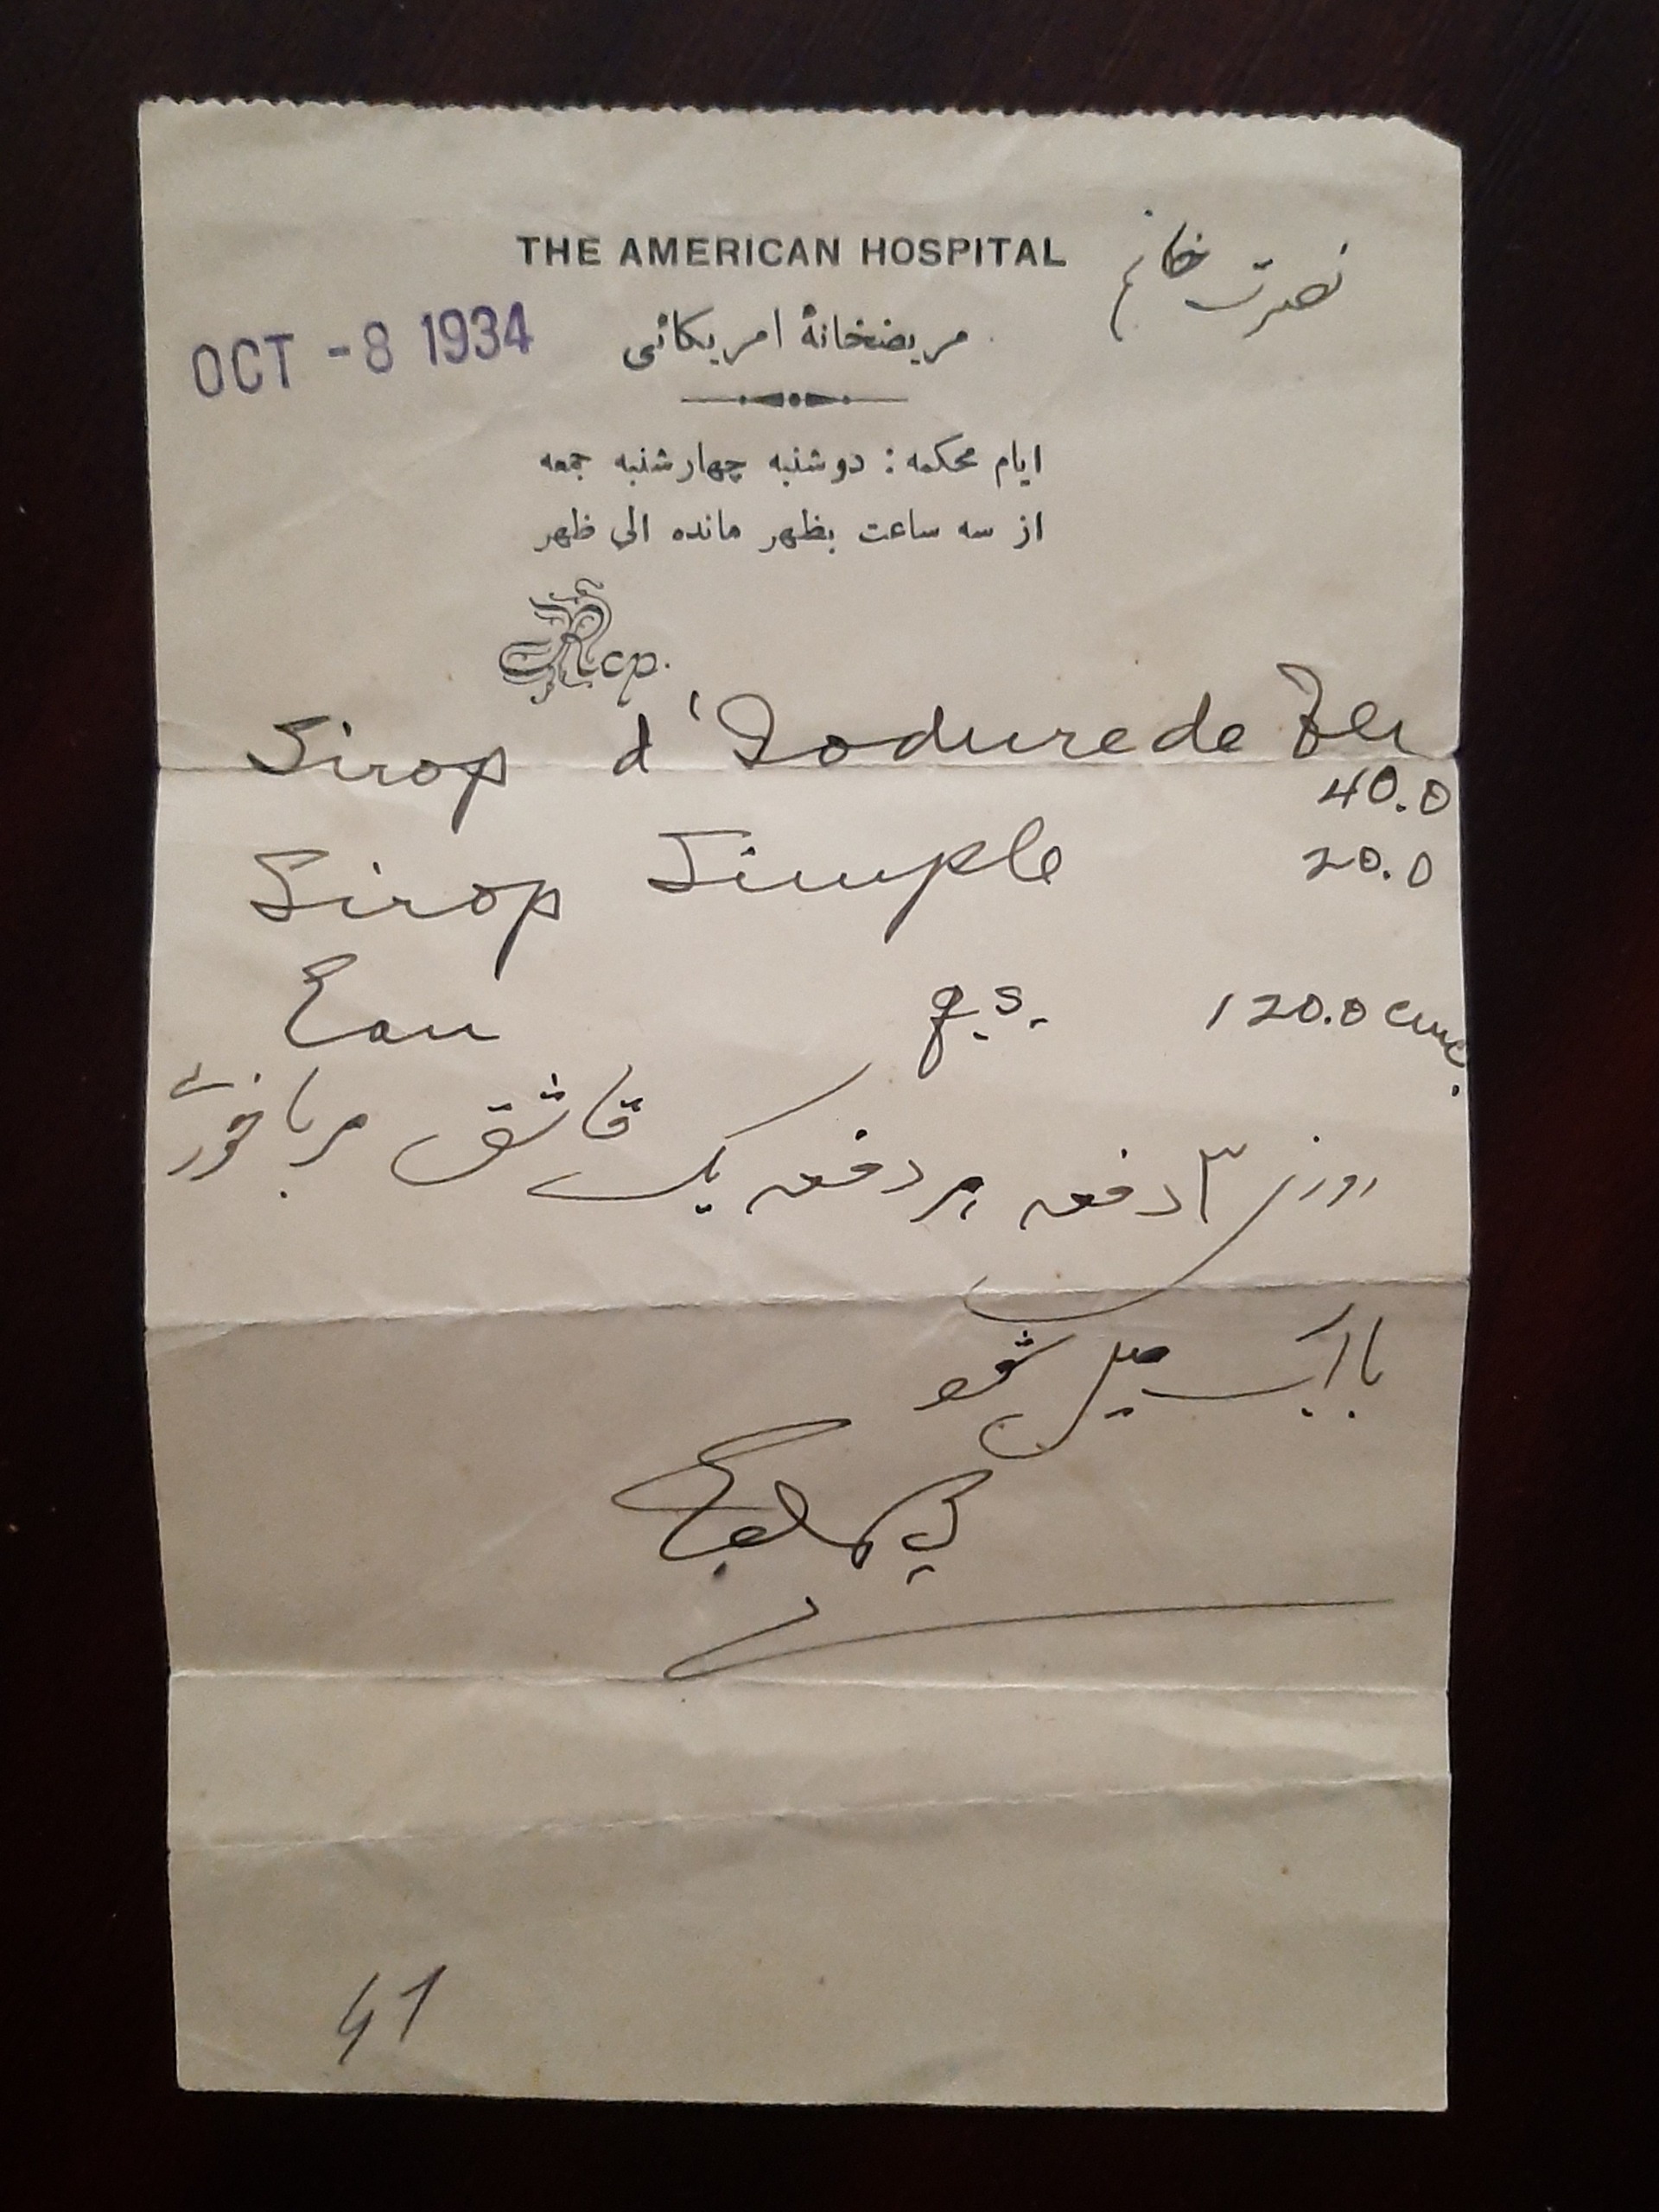 THE AMERICAN HOSPITAL
نصرت خانم
مریضخانهٔ امریکائی
OCT - 8 1934
ایام محکمه : دوشنبه چهارشنبه جمعه
از سه ساعت بظهر مانده الی ظهر
Rcp.
Sirop d'Iodure de Fer
40.0
Sirop Simple 20.0
Eau q.s. 120.0 cmc.
روزی ۳ دفعه هر دفعه یک قاشق مرباخوری
با آب میل شود
41